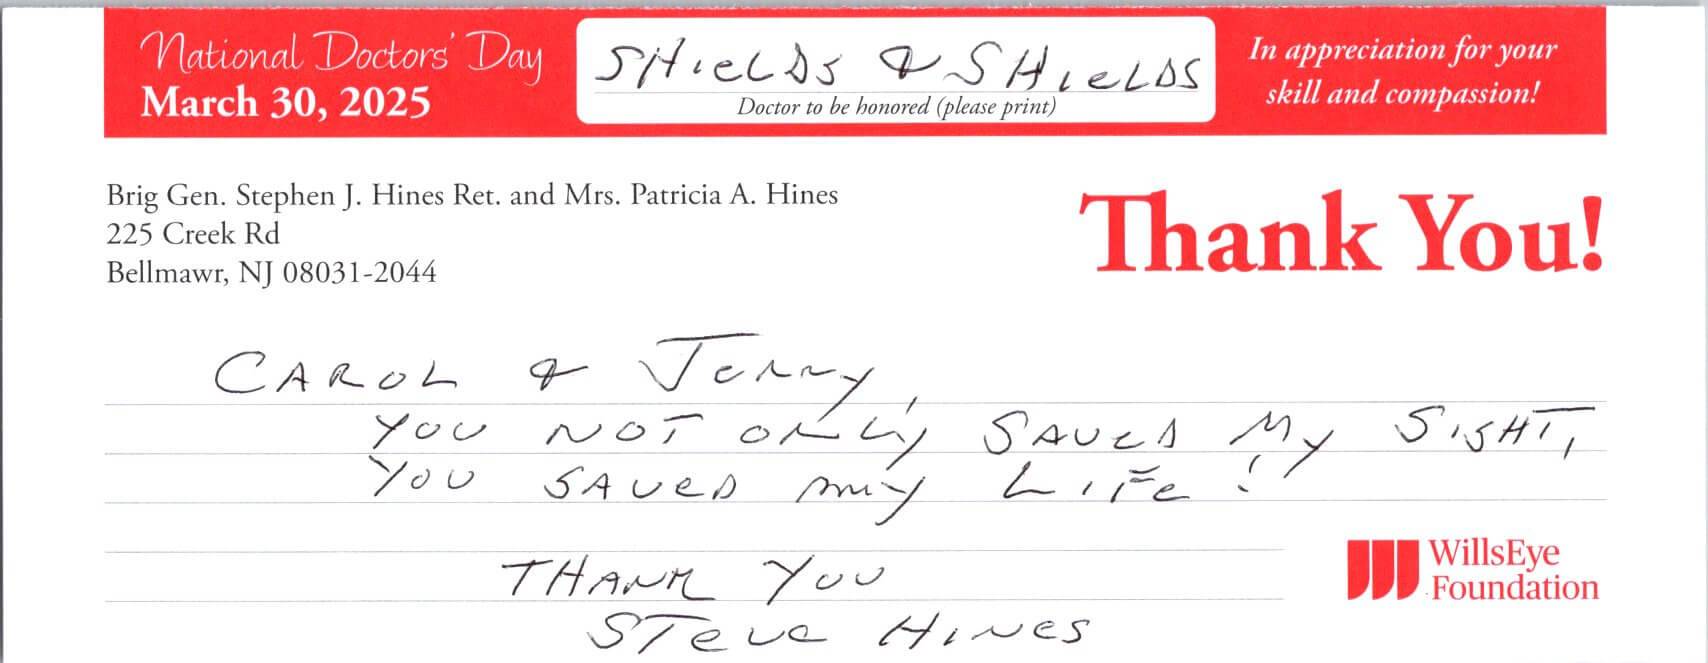 National Doctors' Day
March 30, 2025
SHIELDS & SHIELDS
Doctor to be honored (please print)
In appreciation for your
skill and compassion!
Brig Gen. Stephen J. Hines Ret. and Mrs. Patricia A. Hines
225 Creek Rd
Bellmawr, NJ 08031-2044
Thank You!
CAROL & JERRY,
YOU NOT ONLY SAVED MY SIGHT,
YOU SAVED MY LIFE!
THANK YOU
STEVE HINES
WillsEye
Foundation